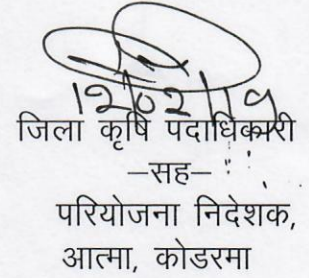 12/02/19
जिला कृषि पदाधिकारी
–सह–
परियोजना निदेशक,
आत्मा, कोडरमा